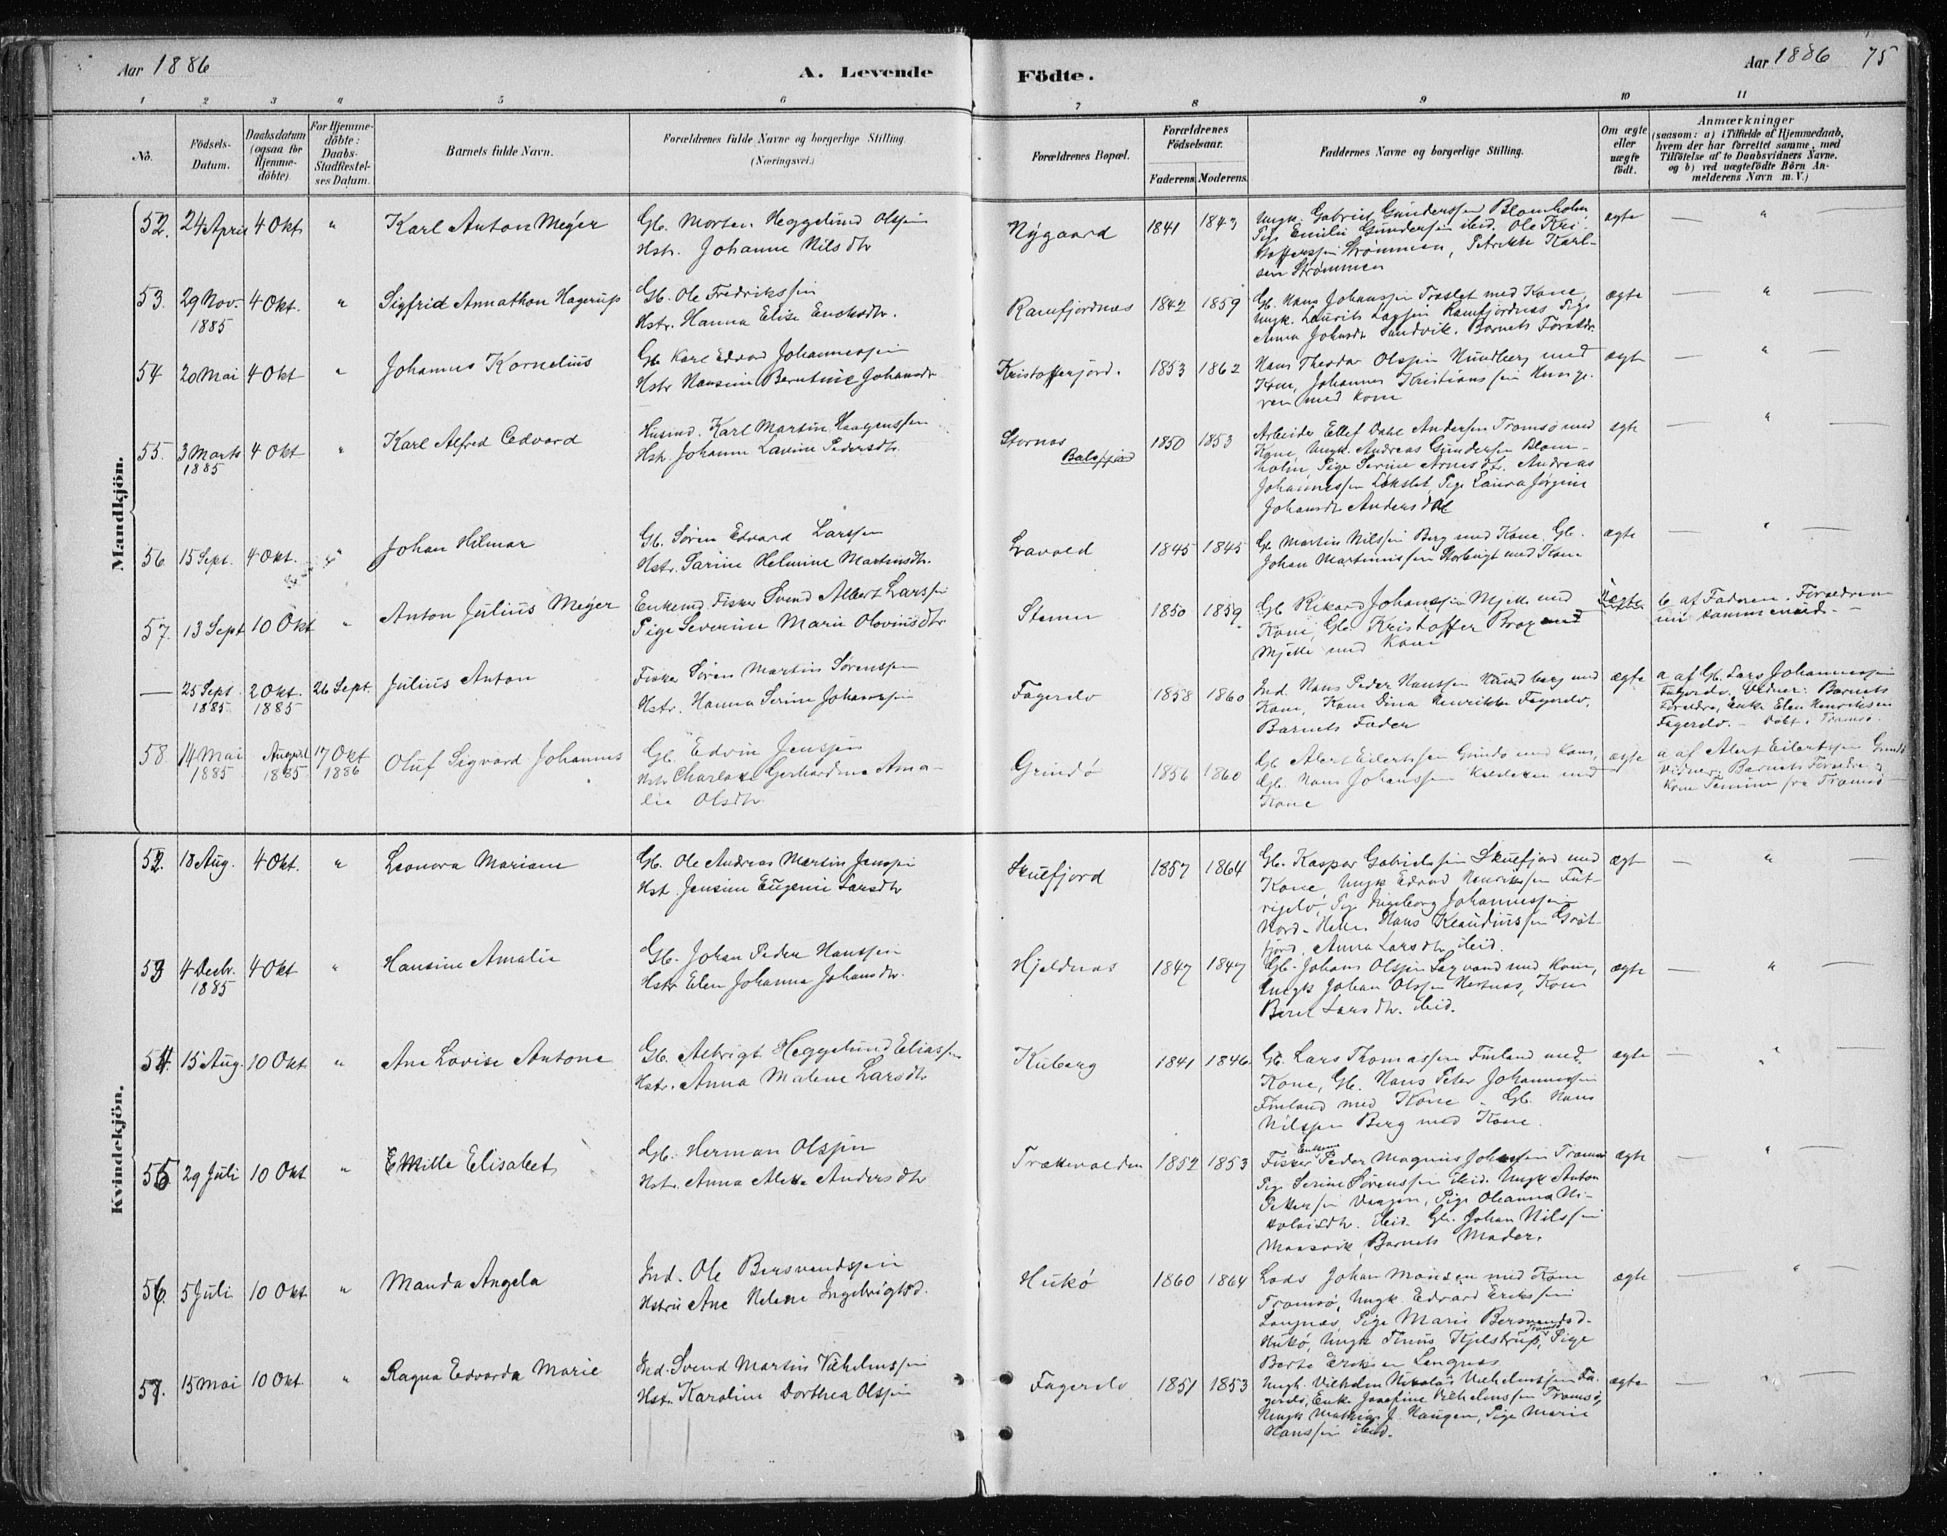 Aar 1886
A. Levende
Födte.
Aar 1886 75
1 2 3 4 5 6 7 8 9 10 11
No.
Födsels-Datum.
Daabsdatum (ogsaa for Hjemmedöbte).
For Hjemmedöbte: Daabs-Stadfestelses Datum.
Barnets fulde Navn.
Forældrenes fulde Navne og borgerlige Stilling (Næringsvei.)
Forældrenes Bopæl.
Forældrenes Födselsaar.
Faderens Moderens
Faddernes Navne og borgerlige Stilling.
Om ægte eller uægte födt.
Anmærkninger
(saasom: a) i Tilfælde af Hjemmedaab, hvem der har forrettet samme, med Tilföielse af to Daabsvidners Navne, og b) ved uægtefödte Börn Anmelderens Navn m. V.)
Mandkjön.
52. 24 April 4 Okt " Karl Anton Meyer
Gb. Morten Heggelund Olssen
Hstr. Johanne Nilsdtr
Nygaard 1841 1843
Ungk. Gabriel Gundersen Blomholm
Pige Emilie Gundersen ibid. Ole Kri-
stofferssen Strømmen, Petrikke Karl-
sen Strømmen
ægte — " —
53. 29 Nov. 1885 4 Okt. " Sigfrid Annathon Hagerup
Gb. Ole Fredrikssen
Hstr. Hanna Elise Enoksdtr.
Ramfjordnæs 1842 1859
Gb. Hans Johanssen Træslet med Kone,
Ungk. Laurits Ramfjordnæs, Pige
Anna Johnsdtr Sandvik. Barnets Forældr.
ægte — " —
54 20 Mai 4 Okt " Johannes Kornelius
Gb Karl Edvard Johannessen
Hstr Hansine Berntine Johansdtr
Kristofferjord. 1853 1862
Hans Theodor Olssen Nundberg med
Kone, Johannes Kristianssen
med Kone
ægte — " —
55. 3 Marts 1885 4 Okt " Karl Alfred Edvard
Husmd. Karl Martin Haagenssen
Hstr. Johanne Lavine Pedersdtr.
Stornæs
Balsfjord
1850 1853
Arbeider Ellef Dahl Andersen Tromsø med
Kone, Ungk. Andreas Gundersen Blom-
holm, Pige Serine Arnesdtr. Andreas
Johannessen Løkslet Pige Laura Jørgine
Johansdtr Andersdal
ægte — " —
56. 15 Sept. 4 Okt. " Johan Hilmar
Gb. Søren Edvard Larssen
Hstr. Sarine Helmine Martinsdtr.
1845 1845
Gb Martin Nilssen Berg med Kone, Gb.
Johan Martinussen med Kone
ægte — " —
57. 13 Sept 10 Okt " Anton Julius Meyer
Enkemd. Fisker Svend Albert Larssen
Pige Severine Marie Olovinsdtr
1850 1859
Gb Rikard Johanssen Mjelle med
Kone, Gb. Kristoffer Brox
Mjelle med Kone
b af Faderen. Forældrene
— 25 Sept. 1885 2 Okt. 1885 26 Sept. Julius Anton
Fisker Søren Martin Sørenssen
Hstr. Hanna Serine Johanssen
Fagerelv 1858 1860
Ind. Hans Peder Hanssen med
Kone, Kone Dina Henrikke Fagerelv,
Barnets Fader
ægte
a af Gb. Lars Johannessen
Fagerelv. Vidner: Barnets
Forældre, Enke Elen Henriksen
Fagerelv. — Døbt i Tromsø.
58. 14 Mai 1885 August 1885 17 Okt 1886 Oluf Sigvard Johannes
Gb Edvin Jenssen
Hstr Charlotte Gerhardine Ama-
lie Olsdtr.
Grindø 1856 1860
Gb Alert Eilertssen Grindø med Kone,
Gb. Hans Johanssen med
Kone
ægte
a af Alert Eilertssen Grindø
Vidner: Barnets Forældre
fra Tromsø
Kvindekjön.
52. 18 Aug. 4 Okt. " Leonora Mariane
Gb. Ole Andreas Martin Jenssen
Hst. Jensine Eugenie Larsdtr
Skulfjord 1857 1864
Gb. Kaspar Gabrielssen Skulfjord med
Kone, Ungk Edvard Henrikssen Fut-
rikelv Pige Ingeborg Johannessen
Nord-Helle. Hans Klaudiussen Grøt-
fjord, Anna Larsdtr. ibid.
ægte — " —
53 4 Decbr. 1885 4 Okt " Hansine Amalie
Gb. Johan Peder Hanssen
Hstr Elen Johanna Johansdtr.
Hjeldnæs 1847 1847
Gb. Johans Olssen med Kone,
Ungk Johan Olssen Kone
Beret Larsdtr. ibid.
ægte — " —
54. 15 Aug. 10 Okt " Ane Lovise Antone
Gb. Albrigt Heggelund Eliassen
Hstr. Anna Malene Larsdtr
Kuberg 1841 1846
Gb. Lars Thomassen Finland med
Kone, Gb. Hans Peter Johannessen
Finland med Kone. Gb. Hans
Nilssen Berg med Kone.
ægte — " —
55 29 Juli 10 Okt " Emille Elisabet
Gb. Herman Olssen
Hstr. Anna Andersdtr
Trækvolden 1852 1853
Enkem.
Fisker Peder Magnus Johnsen Tromsø
Pige Serine Sørenssen ibid. Ungk Anton
Pettersen Vaagen, Pige Oleanna Ni-
kolaisdtr. ibid. Gb. Johan Nilssen
Maasvik, Barnets Moder.
ægte — " —
56. 5 Juli 10 Okt " Manda Angela
Ind. Ole Bersvendssen
Hstru Ane Helene Ingebrigtsd.
Hukø 1860 1864
Lods Johan Monsen med Kone
Tromsø, Ungk. Edvard Erikssen
Langnæs, Pige Marie Bersvendsd.
Hukø, Ungk Tinus Kjelstrup Tromsø, Pige
Berte Eriksen Langnæs
ægte — " —
57. 15 Mai 10 Okt " Ragna Edvarda Marie
Ind. Svend Martin Vilhelmssen
Hstr. Karoline Dorthea Olssen
Fagerelv 1851 1853
Ungk. Vilhelm Nikolai Vilhelmssen Fa-
gerelv, Enke Josefine Vilhelmssen Tromsø,
Ungk Mathias J. Haugen, Pige Marie
Hanssen ibid.
ægte — " —